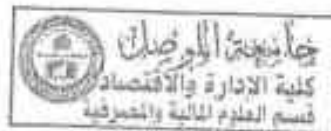 جامعة الموصل
كلية الادارة والاقتصاد
قسم العلوم المالية والمصرفية